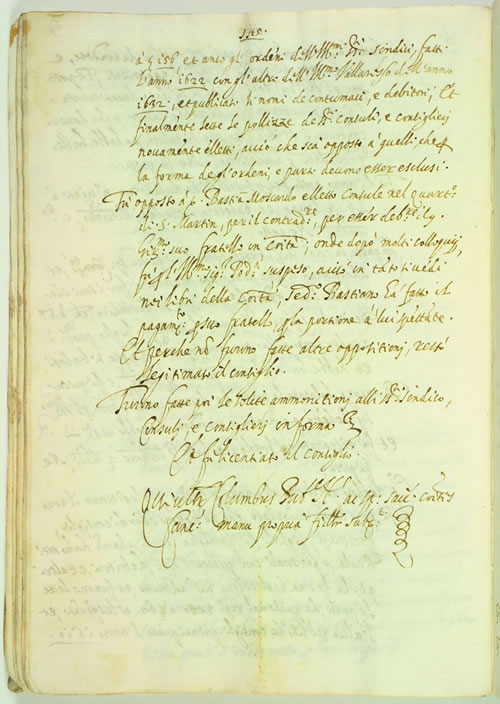 148.
à 156 et anco gl' ordeni dell' Ill.mi sindici, fatti
l'anno 1622 con gl'altri dell' Ill.mo Vallaresso dell'anno
1632, et publicati li nomi de contumaci, e debitori; Et
finalmente lette le polizze de consuli, e consiglieri
novamente elletti, acciò che sia opposto à quelli, che
la forma degl'ordeni, e parti devono esser esclusi.
Fù opposto à Bastian Moscardo elletto Consule nel quart.o
di S. Martin, per il contrad.re, per esser deb.re
suo fratello in Co.ità; onde dopò molti colloquij,
fù l'Ill.mo Sig.r Pod.à suspeso, acciò in tanto si vedi
nei libri della Co.ità, se d.o Bastiano hà fatto il
pagam.to suo fratello, la portione à lui spettate.
Et perche nõ furono fatte altre oppositionj, restò
legitimato il consiglio.
Furono fatte poi le solite ammonitionj alli sindico,
Consulj, e consiglierj in forma
Et fù licentiato il consiglio.
Columbus Not.s
Canc. manu propria